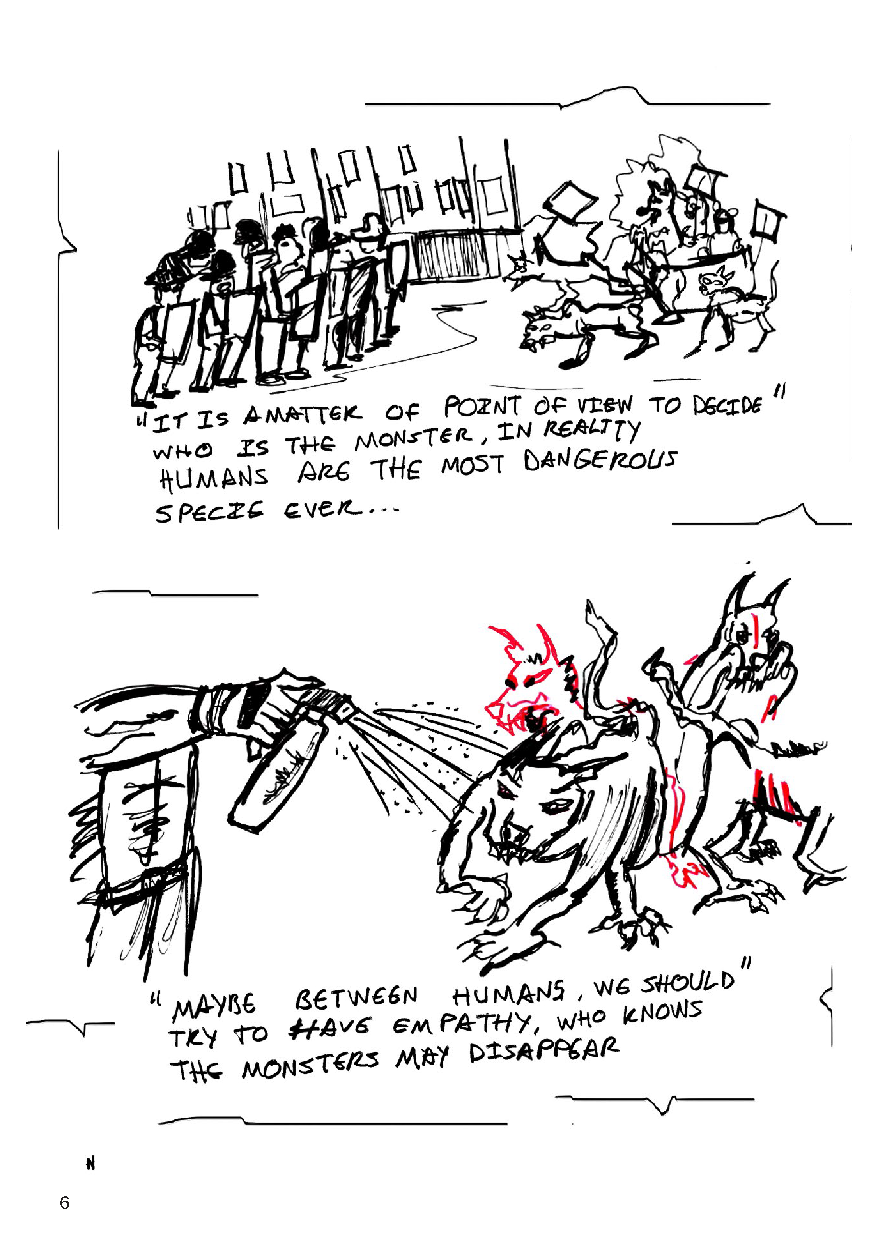 "IT IS A MATTER OF POINT OF VIEW TO DECIDE"
WHO IS THE MONSTER, IN REALITY
HUMANS ARE THE MOST DANGEROUS
SPECIE EVER...
"MAYBE BETWEEN HUMANS, WE SHOULD"
TRY TO HAVE EMPATHY, WHO KNOWS
THE MONSTERS MAY DISAPPEAR
N
6